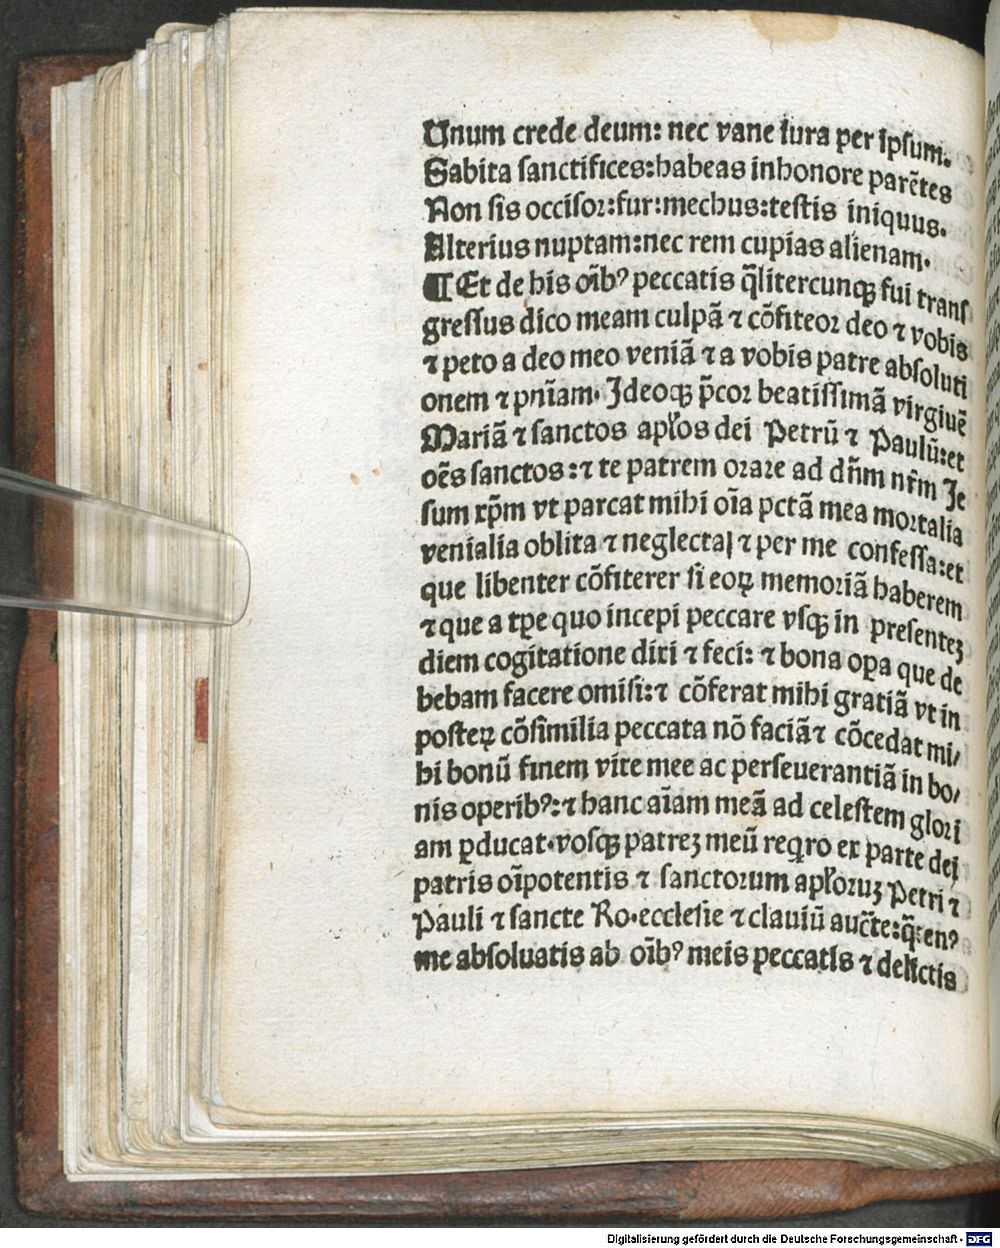 Unum crede deum: nec vane iura per ipsum.
Sabita sanctifices:habeas in honore parētes
Non sis occisor:fur:mechus:testis iniquus.
Alterius nuptam:nec rem cupias alienam.
¶ Et de his oīb⁹ peccatis q̄litercunqꝫ fui trans
gressus dico meam culpā ⁊ cōfiteor deo ⁊ vobis
⁊ peto a deo meo veniā ⁊ a vobis patre absoluti
onem ⁊ pnīam. Ideoqꝫ p̄cor beatissimā virgiuē
Mariā ⁊ sanctos apl̓os dei Petrū ⁊ Paulū:et
oēs sanctos:⁊ te patrem orare ad dn̄m nr̄m Je
sum xp̄m vt parcat mihi oīa pctā mea mortalia
venialia oblita ⁊ neglecta ⁊ per me confessa:et
que libenter cōfiterer si eoꝝ memoriā haberem
⁊ que a tp̄e quo incepi peccare vsqꝫ in presenteꝫ
diem cogitatione dixi ⁊ feci: ⁊ bona oꝑa que de
bebam facere omisi:⁊ cōferat mihi gratiā vt in
posteꝝ cōsimilia peccata nō faciā⁊ cōcedat mi/
hi bonū finem vite mee ac perseuerantiā in bo/
nis operib⁹:⁊ hanc aīam meā ad celestem glori
am ꝑducat.vosqꝫ patreꝫ meū reqro ex parte dei
patris oīpotentis ⁊ sanctorum apl̓oruꝫ Petri ⁊
Pauli ⁊ sancte Ro.ecclesie ⁊ clauiū auc̄te:q̄:en⁹
me absoluatis ab oīb⁹ meis peccatis ⁊ delictis
Digitalisierung gefördert durch die Deutsche Forschungsgemeinschaft - DFG